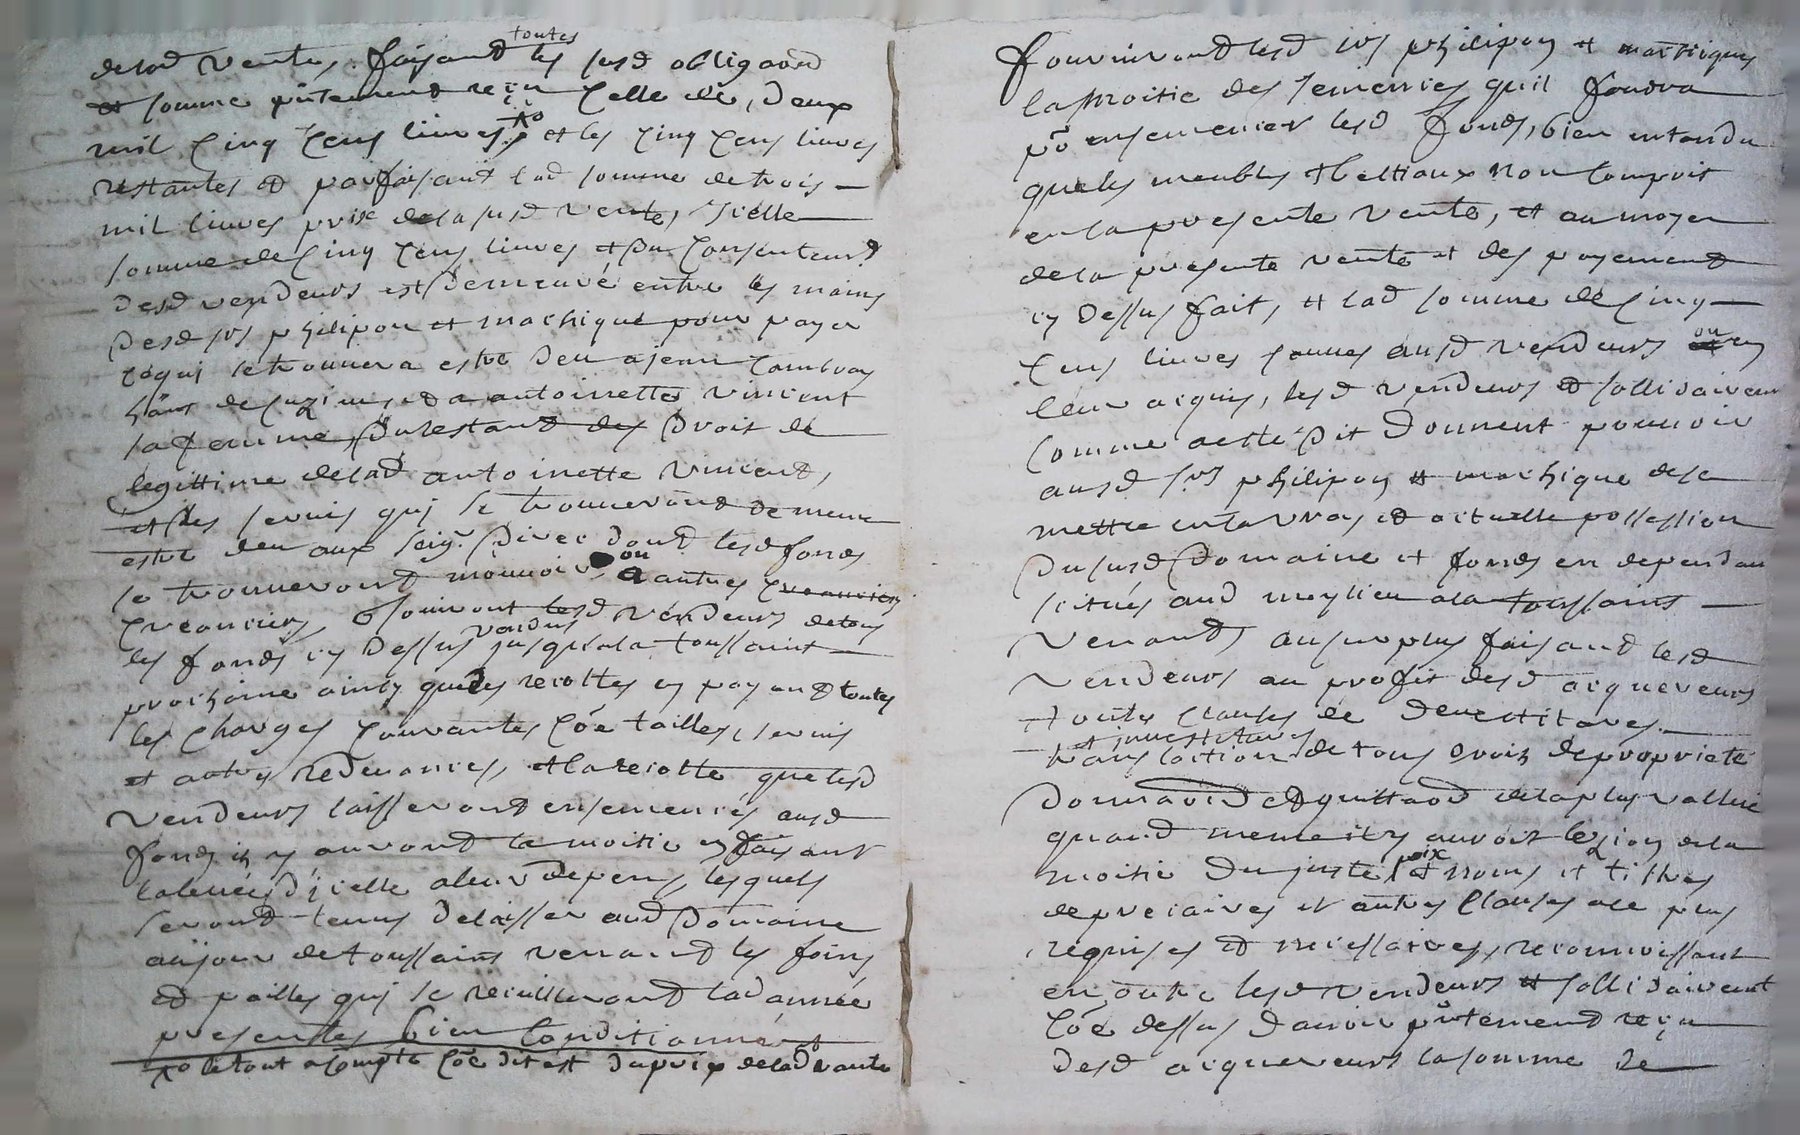 delad vente, faisant toutes les susd obligaōns
et somme p̄ntement reçu celle de, deux
mil cinq cens livres, et les cinq cens livres
restantes et parfaisant lad somme de trois
mil livres prix dela susd vente, icelle
somme de cinq cens livres et du consentemt
desd vendeurs est demeuré entre les mains
desd srs philipon et machique pour payer
ce qui se trouvera estre deu a jean
et a antoinette vincent
sa femme, du restant des droit de
legittime delad antoinette vincent,
et les servis qui se trouveront de meme
estre deu aux seigr. divec dont lesd fonds
se trouveront mouvoir, ou a autres creanciers
creanciers, Jouiront lesd vendeurs de tous
les fonds cy dessus vendus jusqu'a la toussaint
prochaine ainsy que des recoltes en payant toutes
les charges courantes cōe tailles, servis
et autres redevances, et la recolte que lesd
vendeurs laisseront ensemencés ausd
fonds ils y auront la moitie en faisant
la levée d'icelle a leur depens, lesquels
seront tenus de laisser aud domaine
au jour de toussains venant les foins
et pailles qui se recuilleront lad année
presentes bien conditionnés
le tout a compte cōe dit est du prix delad vante
fourniront lesd srs philipon et machique
la moitie des semences qu'il faudra
pō ensemencer lesd fonds, bien entendu
que les meubles et bestiaux non compris
en la presente vente, et au moyen
de la presente vente et des payement
cy dessus fait, et lad somme de cinq
cens livres ausd vendeurs ou en
leur acquis, lesd vendeurs et sollidairemt
comme a esté dit donnent pouvoir
ausd srs philipon et machique de se
mettre en la vray et actuelle possession
du susd domaine et fonds en dependant
scitués aud moylieu a la toussains
venant, au surplus faisant lesd
vendeurs au profit desd acquereurs
toutes clauses de devestitures
et investitures
translaction de tous droits de propriete
donnaōn et quittaōn de la plus vallue
quand meme il y auroit lezion de la
moitie du juste prix et noms et tiltres
de precaires et autres clauses a ce plus
requises et necessaires, reconnoissant
en outre lesd vendeurs et sollidairement
cōe dessus d'avoir p̄ntement reçu
desd acquereurs la somme de